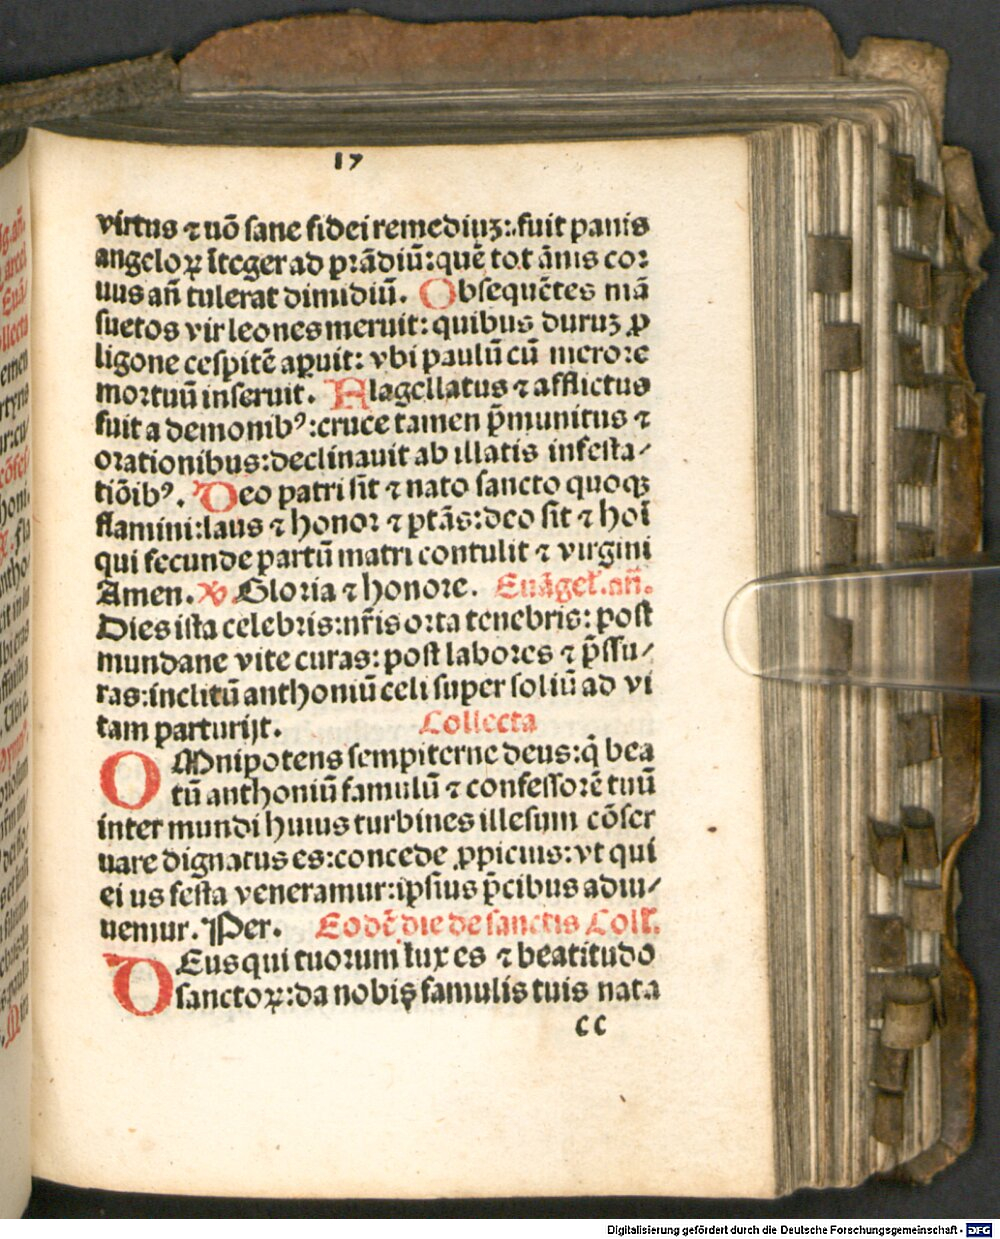 17
virtus ⁊ uō sane fidei remediuꝫ: fuit panis
angeloꝝ īteger ad prādiū: quē tot ānis cor
uus añ tulerat dimidiū. Obsequētes mā
suetos vir leones meruit: quibus duruꝫ ꝓ
ligone cespitē apuit: vbi paulū cū merore
mortuū inseruit. Flagellatus ⁊ afflictus
fuit a demonibꝰ: cruce tamen p̄munitus ⁊
orationibus: declinauit ab illatis infesta⸗
tiōibꝰ. Deo patri sit ⁊ nato sancto quoqꝫ
flamini: laus ⁊ honor ⁊ ptās: deo sit ⁊ hoī
qui fecunde partū matri contulit ⁊ virgini
Amen. ℣. Gloria ⁊ honore. Euāgeł. añ.
Dies ista celebris: nr̄is orta tenebris: post
mundane vite curas: post labores ⁊ p̄ssu⸗
ras: inclitū anthoniū celi super soliū ad vi
tam parturijt. Collecta
OMnipotens sempiterne deus: q̄ bea
tū anthoniū famulū ⁊ confessorē tuū
inter mundi huius turbines illesum cōser
uare dignatus es: concede ꝓpicius: vt qui
ei us festa veneramur: ipsius p̄cibus adiu⸗
uemur. Per. Eodē die de sanctis Coll.
DEus qui tuorum lux es ⁊ beatitudo
sanctoꝝ: da nobis famulis tuis nata
cc
Digitalisierung gefördert durch die Deutsche Forschungsgemeinschaft - DFG